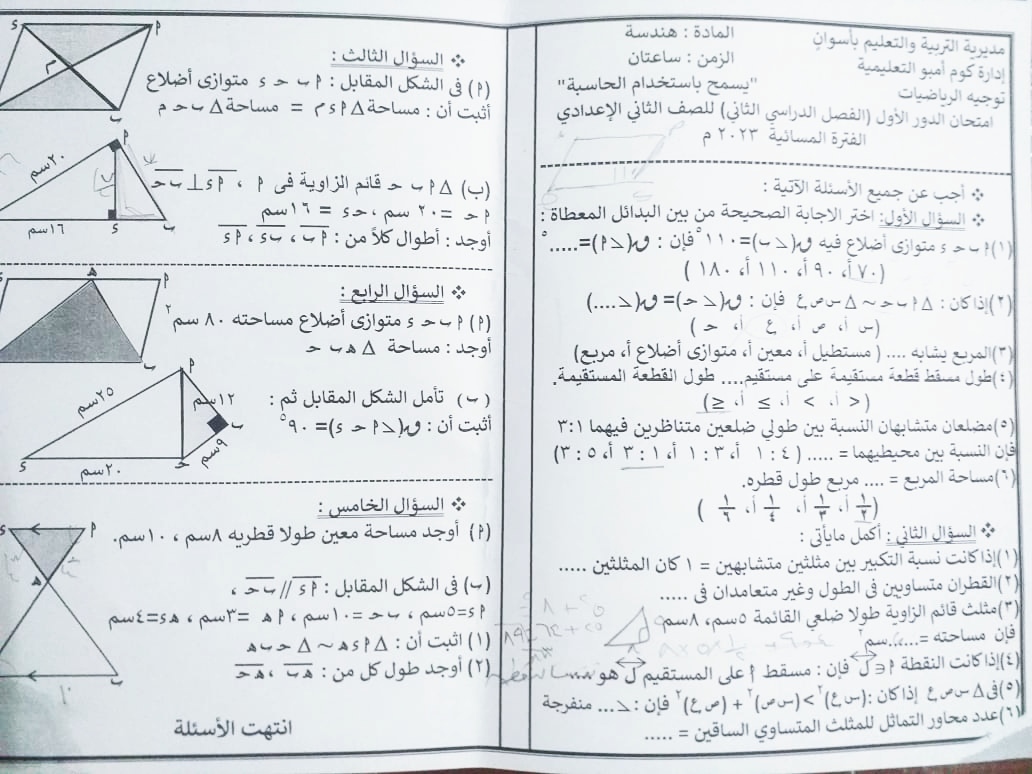 مديرية التربية والتعليم بأسوان
إدارة كوم أمبو التعليمية
توجيه الرياضيات
المادة : هندسة
الزمن : ساعتان
"يسمح باستخدام الحاسبة"
امتحان الدور الأول (الفصل الدراسي الثاني) للصف الثاني الإعدادي
الفترة المسائية ٢٠٢٣ م
❖ أجب عن جميع الأسئلة الآتية :
❖ السؤال الأول: اختر الاجابة الصحيحة من بين البدائل المعطاة :
(١) ٩ ب ح ء متوازى أضلاع فيه ق(∠ب)=١١٠° فإن : ق(∠٩)=.....°
(٧٠ أ، ٩٠ أ، ١١٠ أ، ١٨٠ )
(٢)إذا كان : Δ٩ ب ح ~ Δ س ص ع فإن : ق(∠ح)= ق(∠....)
(س أ، ص أ، ع أ، ح )
(٣)المربع يشابه .... ( مستطيل أ، معين أ، متوازى أضلاع أ، مربع)
(٤)طول مسقط قطعة مستقيمة على مستقيم.... طول القطعة المستقيمة.
(> أ، < أ، ≥ أ، ≤)
(٥)مضلعان متشابهان النسبة بين طولي ضلعين متناظرين فيهما ١:٣
فإن النسبة بين محيطيهما = ..... (٤ : ١ أ، ٣:١ أ، ١ : ٣ أ، ٥ : ٣)
(٦)مساحة المربع = .... مربع طول قطره.
(١/٢ أ، ١/٣ أ، ١/٤ أ، ١/٦ )
❖ السؤال الثاني : أكمل مايأتى :
(١)إذا كانت نسبة التكبير بين مثلثين متشابهين = ١ كان المثلثين .....
(٢)القطران متساويين فى الطول وغير متعامدان فى .....
(٣)مثلث قائم الزاوية طولا ضلعي القائمة ٥سم، ٨سم
فإن مساحته =......سم٢
(٤)إذا كانت النقطة ٩ ∈ ل فإن : مسقط ٩ على المستقيم ل هو
(٥)فى Δ س ص ع إذا كان :(س ع)٢ > (س ص)٢ + (ص ع)٢ فإن : ∠... منفرجة
(٦)عدد محاور التماثل للمثلث المتساوي الساقين = .....
❖ السؤال الثالث :
(٩) فى الشكل المقابل : ٩ ب ح ء متوازى أضلاع
أثبت أن : مساحة Δ ٩ ء م = مساحة Δ ب ح م
ء
٩
م
ب
(ب) Δ ٩ ب ح قائم الزاوية فى ٩ ، ٩ء ⊥ ب ح
٩ ح = ٢٠ سم ، ح ء = ١٦سم
أوجد : أطوال كلاً من : ٩ب ، ب ء ، ٩ء
٩
٢٠سم
١٦سم
ء
ب
❖ السؤال الرابع :
(٩) ٩ ب ح ء متوازى أضلاع مساحته ٨٠ سم٢
أوجد : مساحة Δ هـ ب ح
ء
هـ
٩
ب
(ب) تأمل الشكل المقابل ثم :
أثبت أن : ق(∠٩ ح ء) = ٩٠°
٩
٢٥سم
١٢سم
ب
٩سم
ح
٢٠سم
ء
❖ السؤال الخامس :
(٩) أوجد مساحة معين طولا قطريه ٨سم ، ١٠سم.
(ب) فى الشكل المقابل : ٩ء // ب ح ،
٩ء=٥سم ، ب ح=١٠سم ، ٩هـ =٣سم ، هـ ء=٤سم
(١) اثبت أن : Δ ٩ ء هـ ~ Δ ح ب هـ
(٢) أوجد طول كل من : هـ ب ، هـ ح
ء
٩
هـ
ب
انتهت الأسئلة